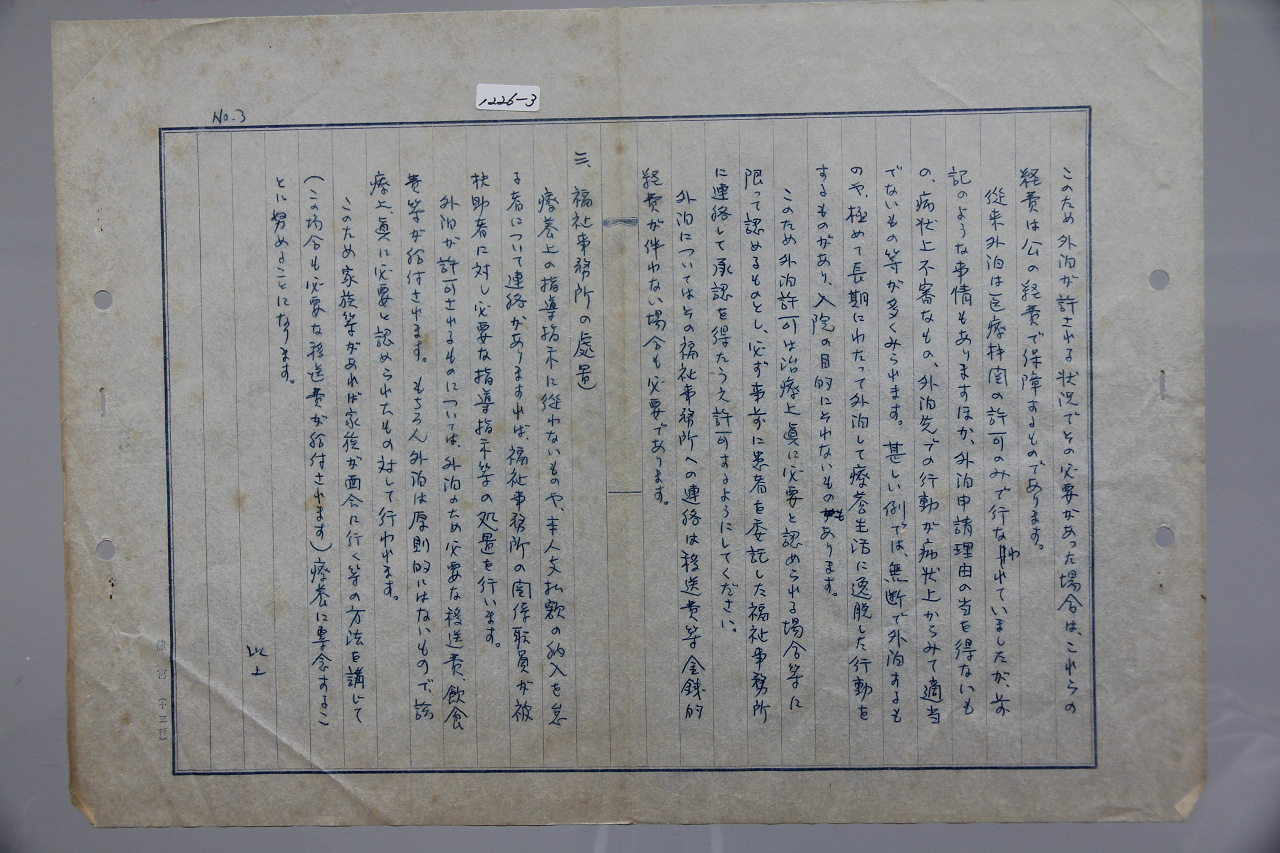 1226-3
No.3
このため外泊が許される状況でその必要があった場合は、これらの
経費は公の経費で保障するものであります。
従来外泊は医療机関の許可のみで行なわれていましたが、前
記のような事情もありますほか、外泊申請理由の当を得ないも
の、病状上不審なもの、外泊先での行動が病状上からみて適当
でないもの等が多くみられます。甚しい例では、無断で外泊するも
のや、極めて長期にわたって外泊して療養生活に逸脱した行動を
するものがあり、入院の目的にそわないものもあります。
このため外泊許可は治療上眞に必要と認められる場合等に
限って認めるものとし、必ず事前に患者を委託した福祉事務所
に連絡して承認を得たうえ許可するようにしてください。
外泊についてはその福祉事務所への連絡は移送費等金銭的
経費が伴わない場合も必要であります。
三、福祉事務所の處置
療養上の指導指示に従わないものや、本人支払額の納入を怠
る者について連絡がありますれば、福祉事務所の関係職員が被
扶助者に対し必要な指導指示等の処置を行います。
外泊が許可されるものについては、外泊のため必要な移送費、飲食
費等が給付されます。もちろん外泊は原則的にはないもので、該
療上、眞に必要と認められたもの対して行われます。
このため家族等があれば家族が面会に行く等の方法を講じて
(この場合も必要な移送費が給付されます)療養に專念するこ
とに努めることになります。
以上